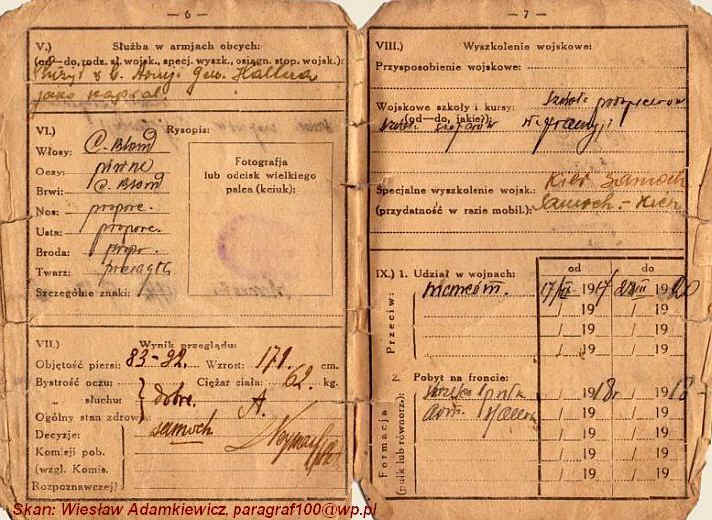 — 6 —
V.) Służba w armjach obcych:
(od—do, rodz. sł. wojsk., specj. wyszk., osiągn. stop. wojsk.):
Służył w b. Armji Gen. Hallera
jako kapral
VI.) Rysopis:
Włosy: C. Blond
Oczy: piwne
Brwi: C. Blond
Nos: proporc.
Usta: proporc.
Broda: propor.
Twarz: pociągła
Szczególne znaki:
Fotografja
lub odcisk wielkiego
palca (kciuk):
VII.) Wynik przeglądu:
Objętość piersi: 83-92. Wzrost: 171. cm.
Bystrość oczu: Ciężar ciała: 62. kg.
„ słuchu: dobre.
Ogólny stan zdrowia: A.
Decyzje: samoch
Komisji pob.
(wzgl. Komis.
Rozpoznawczej)
— 7 —
VIII.) Wyszkolenie wojskowe:
Przysposobienie wojskowe:
Wojskowe szkoły i kursy: Szkoła
(od—do, jakie?):
Szkoła szoferów we Francji
Specjalne wyszkolenie wojsk.: Kier Samoch
(przydatność w razie mobil.): Samoch. - Kier
IX.) 1. Udział w wojnach: od do
Przeciw: niemcom. 17/ 1917 / 1920
/ 19 / 19
/ 19 / 19
/ 19 / 19
2. Pobyt na froncie:
Formacja
(pułk lub równorz.):
/ 1918 / 19
arm. Hallera / 19 / 19
/ 19 / 19
/ 19 / 19
/ 19 / 19
Skan: Wiesław Adamkiewicz, paragraf100@wp.pl